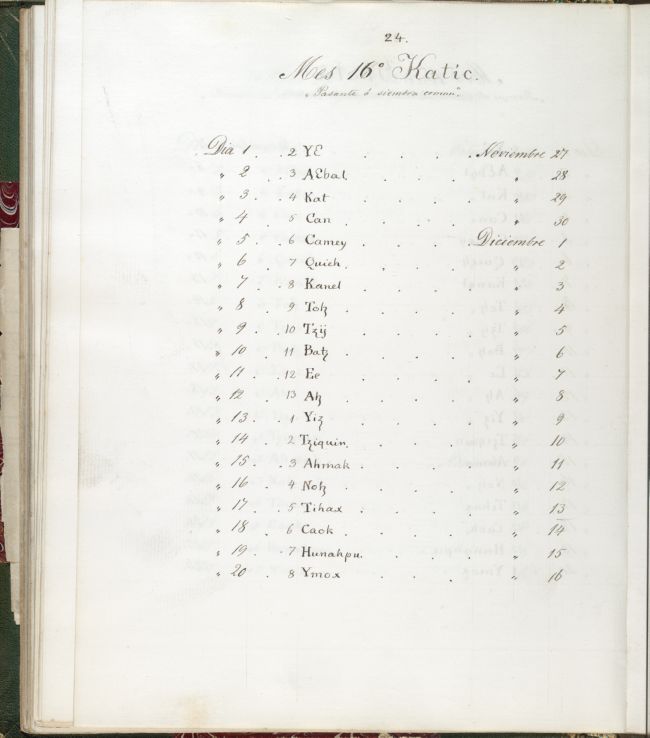 24.
Mes 16° Katic.
Pasante ó siembra comun.
Dia 1. . 2 YE . . . . Noviembre 27
" 2 . 3 AEbal . . . . " 28
" 3. . 4 Kat . . . . " 29
" 4 . 5 Can . . . . " 30
" 5 . . 6 Camey . . . . Diciembre 1
" 6 . 7 Quieh . . . . " 2
" 7 . . 8 Kanel . . . . " 3
" 8 . 9 Toꜩ . . . . " 4
" 9 . . 10 Tzij . . . . " 5
" 10 . 11 Batz . . . . " 6
" 11 . . 12 Ee . . . . " 7
" 12 . 13 Ah . . . . " 8
" 13. . 1 Yiz . . . . " 9
" 14 . 2 Tziquin. . . . " 10
" 15. . 3 Ahmak . . . . " 11
" 16 . 4 Notz . . . . " 12
" 17. . 5 Tihax . . . . " 13
" 18 . 6 Caok . . . . " 14
" 19 . 7 Hunahpu. . . . " 15
" 20 . 8 Ymox . . . . " 16